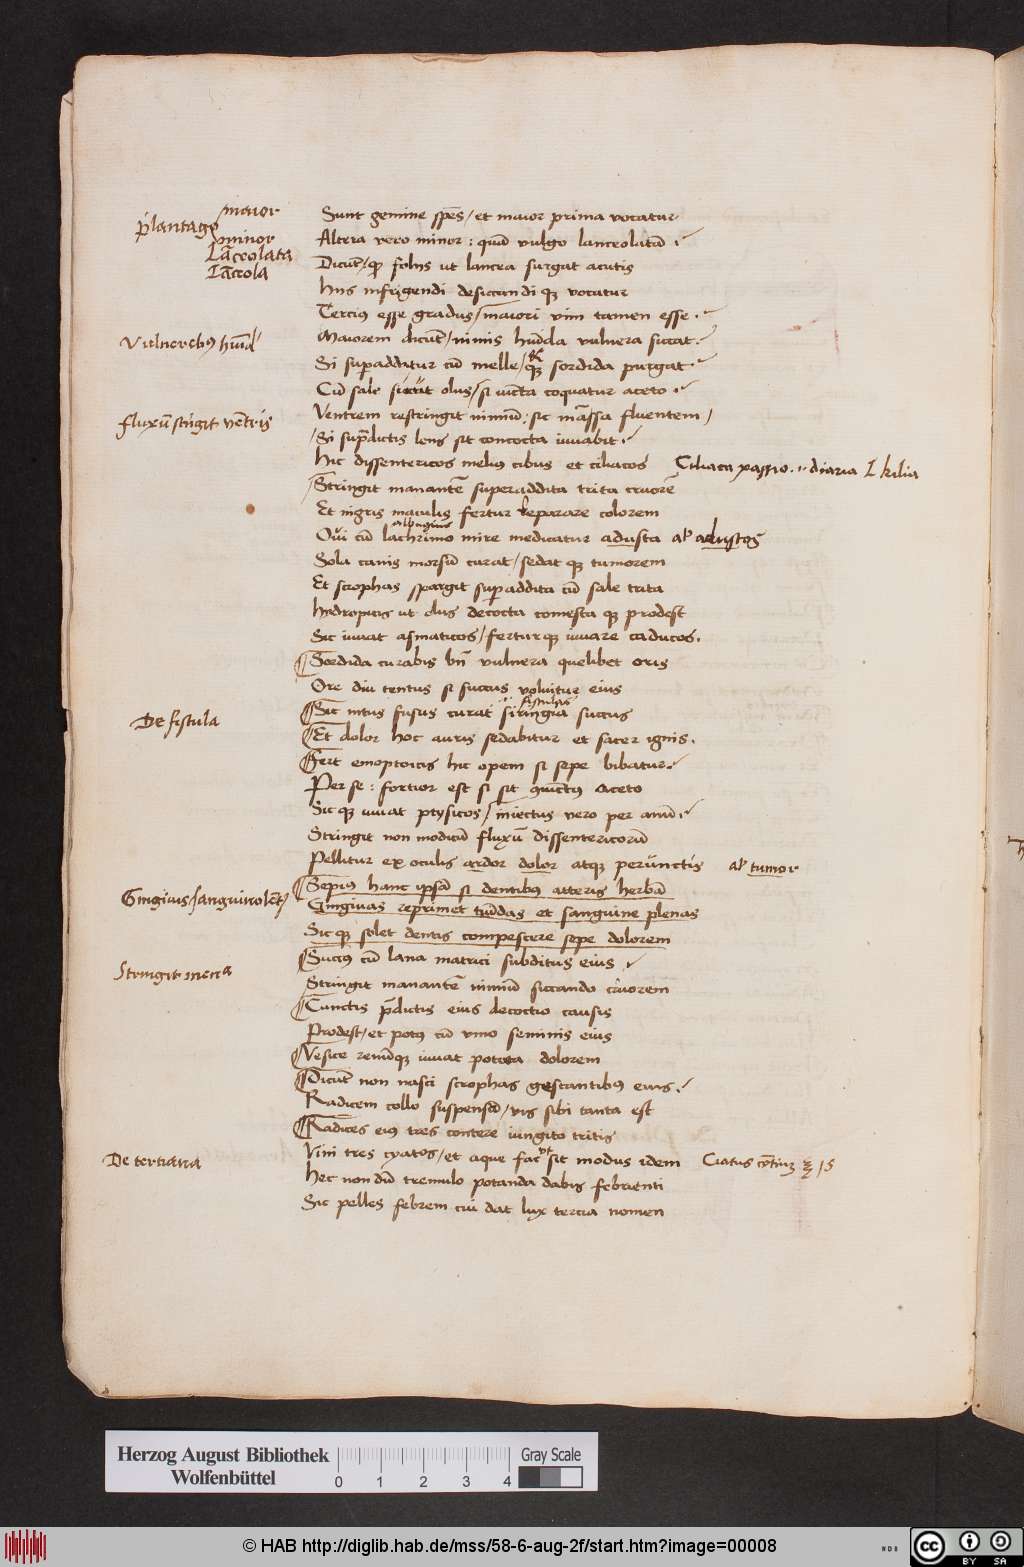 plantago maior
minor
Lāceolata
Lāceola
Sunt gemine spēs / et maior prima vocatur
Altera vero minor : quā vulgo lanceolatā
Dicūt / qz folijs ut lancea surgat acutis
hijs infrigendi desiccandi qz vocatur
Tercius esse gradus / maiori vim tamen esse
Vulneribus hūid
Maiorem dicūt / nimis hūida vulnera siccat
Si superadditur cū melle / qz sordida purgat
Cū sale sicut olus / si iuncta coquatur aceto
fluxū strīgit vētris
Ventrem restringit nimiū : sic māssa fluentem /
Si supradictis lens sit concocta iuuabit
hic dissentericos melius cibus et ciliacos Ciliaca passio .i. diaria kilia
Stringit manantē superaddita trita cruorē
Et nigris maculis fertur reparare colorem
albugine
Oui cū lachrimo mire medicatur adusta al' adustos
Sola canis morsū curat / sedat qz tumorem
Et scrophas spargit superaddita cū sale trita
hidropicis ut olus decocta comesta qz prodest
Sic iuuat asmaticos / fertur qz iuuare caducos.
Sordida curabis bn̄ vulnera quelibet oris
Ore diu tentus si succus voluitur eius
fistulas
De fistula
Sic intus fusus curat siringia succus
Et dolor hoc auris sedabitur et sacer ignis.
Fert emoptoicis hic opem si sepe bibatur
Per se : fortior est si sit iunctus aceto
Sic qz iuuat ptysicos / iniectus vero per anū
Stringit non modicū fluxū dissentericorū
Pellitur ex oculis ardor dolor atqz perunctis al' tumor
Gingiuis sanguinolēt
Sepius hanc ipsā si dentibus atteris herbā
Gingiuas reprimet tūidas et sanguine plenas
Sic qz solet dentis compescere sepe dolorem
Stringit
Succus cū lana matrici subditus eius
Stringit manantē nimiū siccando cruorem
Cunctis p̄dictis eius decoctio causis
Prodest / et potus cū vino seminis eius
Vesice renumqz iuuat potata dolorem
Dicūt non nasci scrophas gestantibus eius
Radicem collo suspensā / vis sibi tanta est
Radices eius tres contere iungito tritis
De tertiana
Vini tres cyatos / et aque sit modus idem Ciatus
hec non dū tremulo potanda dabis febrienti
Sic pelles febrem cui dat lux tercia nomen
Herzog August Bibliothek
Wolfenbüttel
0 1 2 3 4
Gray Scale
© HAB http://diglib.hab.de/mss/58-6-aug-2f/start.htm?image=00008
WDB
cc BY SA